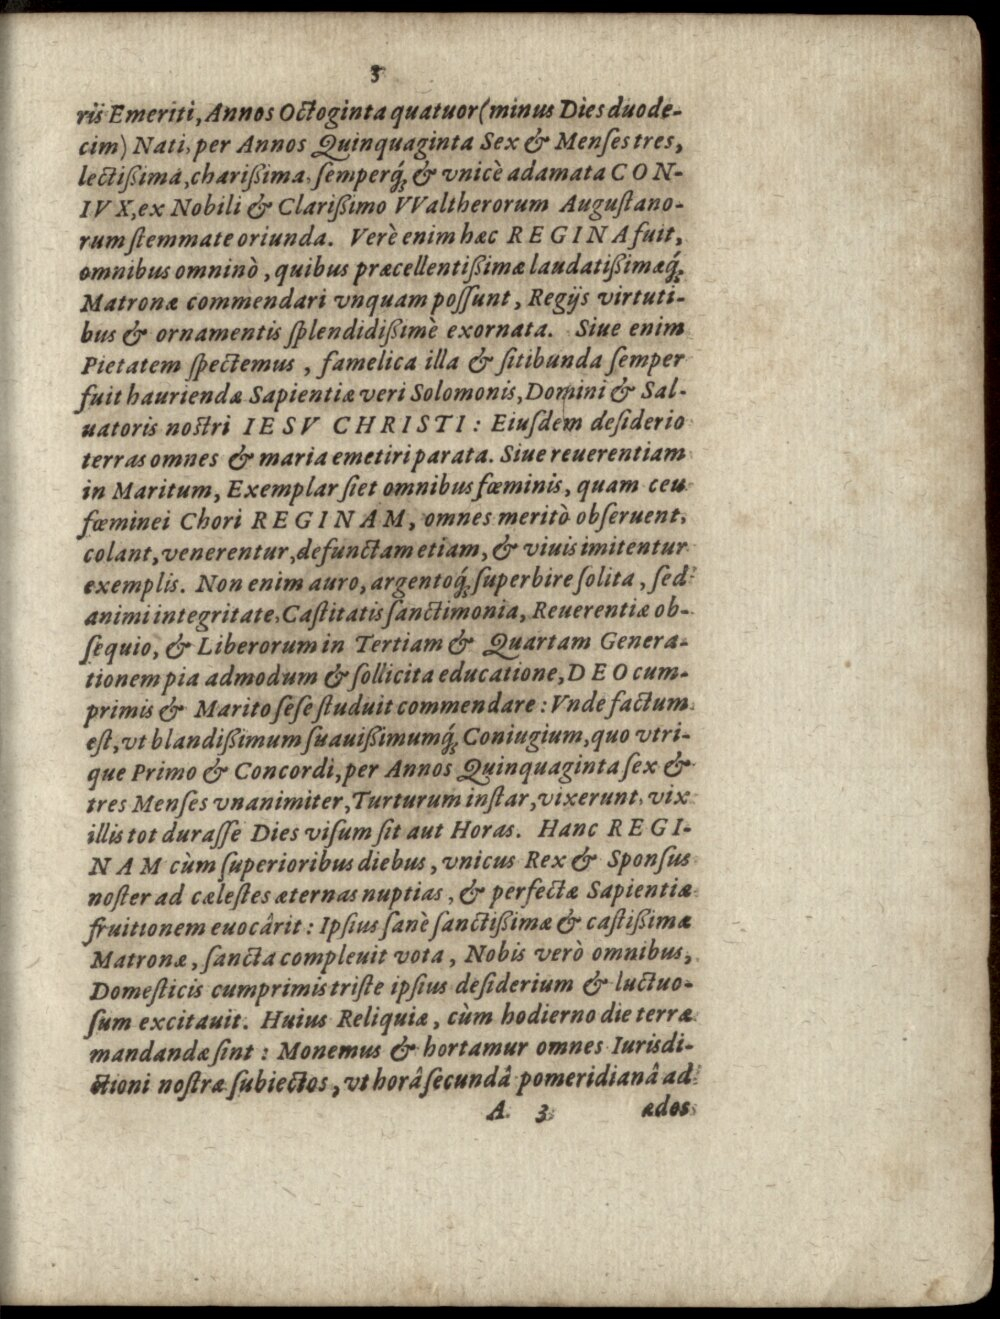 3
rii Emeriti, Annos Octoginta quatuor (minus Dies duode-
cim) Nati, per Annos Quinquaginta Sex & Menses tres,
lectißima, charißima, semperq́; & vnicè adamata CON-
IVX, ex Nobili & Clarißimo VValtherorum Augustano-
rum stemmate oriunda. Verè enim hæc REGINA fuit,
omnibus omninò, quibus præcellentißimæ laudatißimæq́;
Matronæ commendari vnquam possunt, Regijs virtuti-
bus & ornamentis splendidißimè exornata. Siue enim
Pietatem spectemus, famelica illa & sitibunda semper
fuit hauriendæ Sapientiæ veri Solomonis, Domini & Sal-
uatoris nostri IESV CHRISTI: Eiusdem desiderio
terras omnes & maria emetiri parata. Siue reuerentiam
in Maritum, Exemplar siet omnibus fœminis, quam ceu
fœminei Chori REGINAM, omnes meritò obseruent,
colant, venerentur, defunctam etiam, & viuis imitentur
exemplis. Non enim auro, argentoq́; superbire solita, sed
animi integritate, Castitatis sanctimonia, Reuerentiæ ob-
sequio, & Liberorum in Tertiam & Quartam Genera-
tionem pia admodum & sollicita educatione, DEO cum-
primis & Marito sese studuit commendare: Vnde factum
est, vt blandißimum suauißimumq́; Coniugium, quo vtri-
que Primo & Concordi, per Annos Quinquaginta sex &
tres Menses vnanimiter, Turturum instar, vixerunt, vix
illis tot durasse Dies visum sit aut Horas. Hanc REGI-
NAM cùm superioribus diebus, vnicus Rex & Sponsus
noster ad cælestes æternas nuptias, & perfectæ Sapientiæ
fruitionem euocârit: Ipsius sanè sanctißimæ & castißimæ
Matronæ, sancta compleuit vota, Nobis verò omnibus,
Domesticis cumprimis triste ipsius desiderium & luctuo-
sum excitauit. Huius Reliquiæ, cùm hodierno die terræ
mandandæ sint: Monemus & hortamur omnes Iurisdi-
ctioni nostræ subiectos, vt horâ secundâ pomeridianâ ad
A 3 ædes